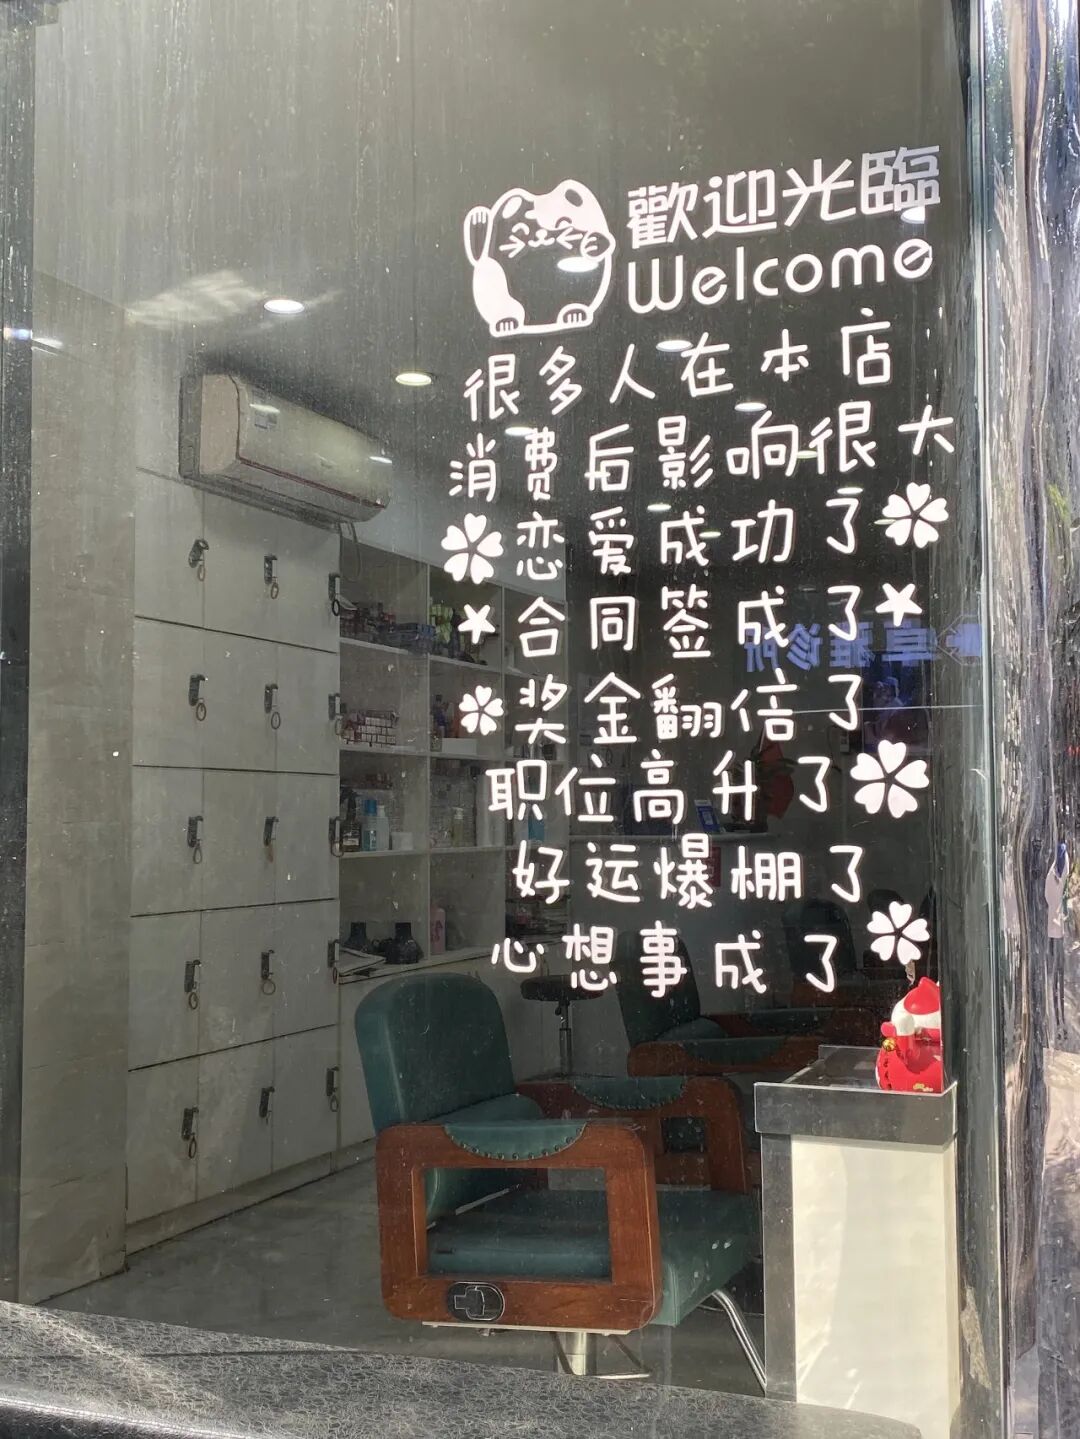 歡迎光臨
Welcome
很多人在本店
消费后影响很大
恋爱成功了
合同签成了
奖金翻倍了
职位高升了
好运爆棚了
心想事成了
雅诊所